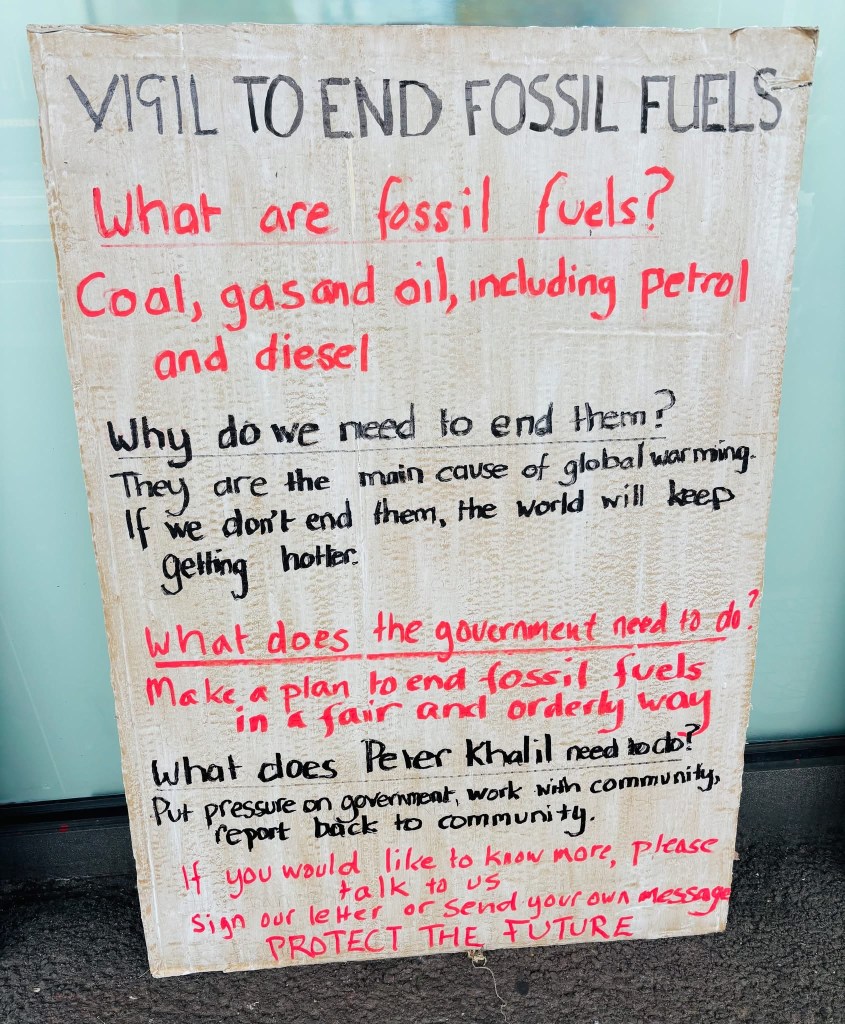 VIGIL TO END FOSSIL FUELS
What are fossil fuels?
Coal, gas and oil, including petrol
and diesel
Why do we need to end them?
They are the main cause of global warming.
If we don't end them, the world will keep
getting hotter.
What does the government need to do?
Make a plan to end fossil fuels
in a fair and orderly way
What does Peter Khalil need to do?
Put pressure on government, work with community,
report back to community.
If you would like to know more, please
talk to us
Sign our letter or send your own message
PROTECT THE FUTURE